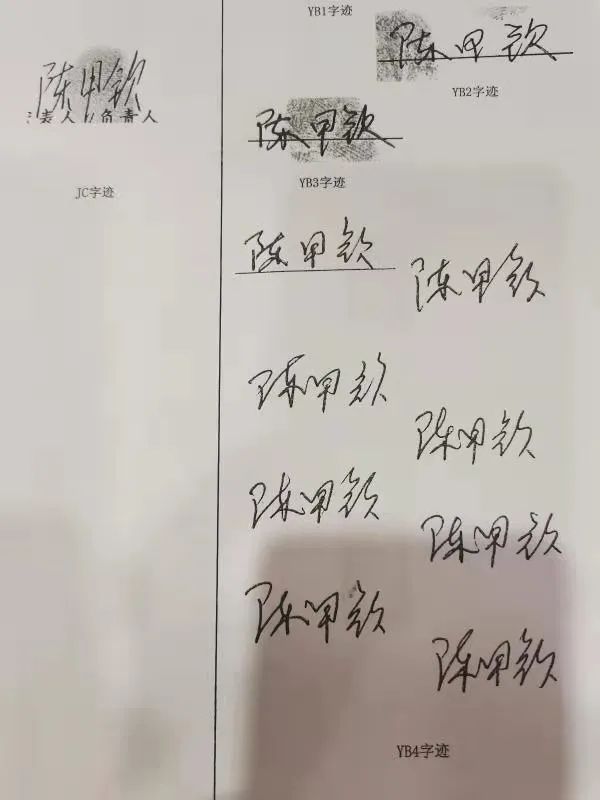 YB1字迹
陈甲钦
YB2字迹
陈甲钦
表人/负责人
JC字迹
陈甲钦
YB3字迹
陈甲钦
陈甲钦
陈甲钦
陈甲钦
陈甲钦
陈甲钦
陈甲钦
陈甲钦
YB4字迹